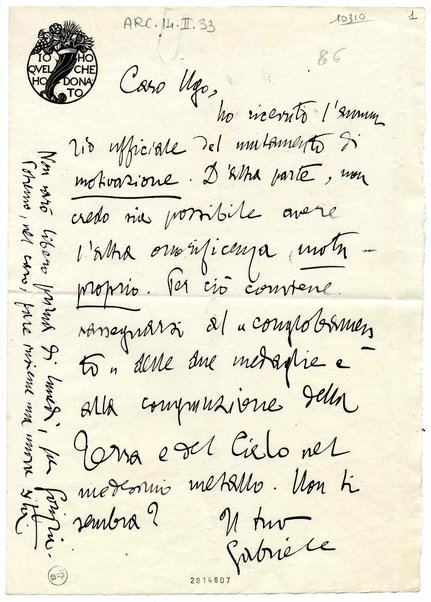 ARC. 14. II. 33
10310
1
86
IO HO
QUEL CHE
HO DONA
TO
Caro Ugo,
ho ricevuto l'annun
zio ufficiale del mutamento di
motivazione. D'altra parte, non
credo sia possibile avere
l'altra onorificenza motu-
proprio. Per ciò conviene
rassegnarsi al "conglobamen
to" delle due medaglie e
alla congiunzione della
Terra e del Cielo nel
medesimo metallo. Non ti
sembra?
Il tuo
Gabriele
Non sarò libero prima di lunedì, per
Potremo, del caso, fare insieme una nuova
2814807